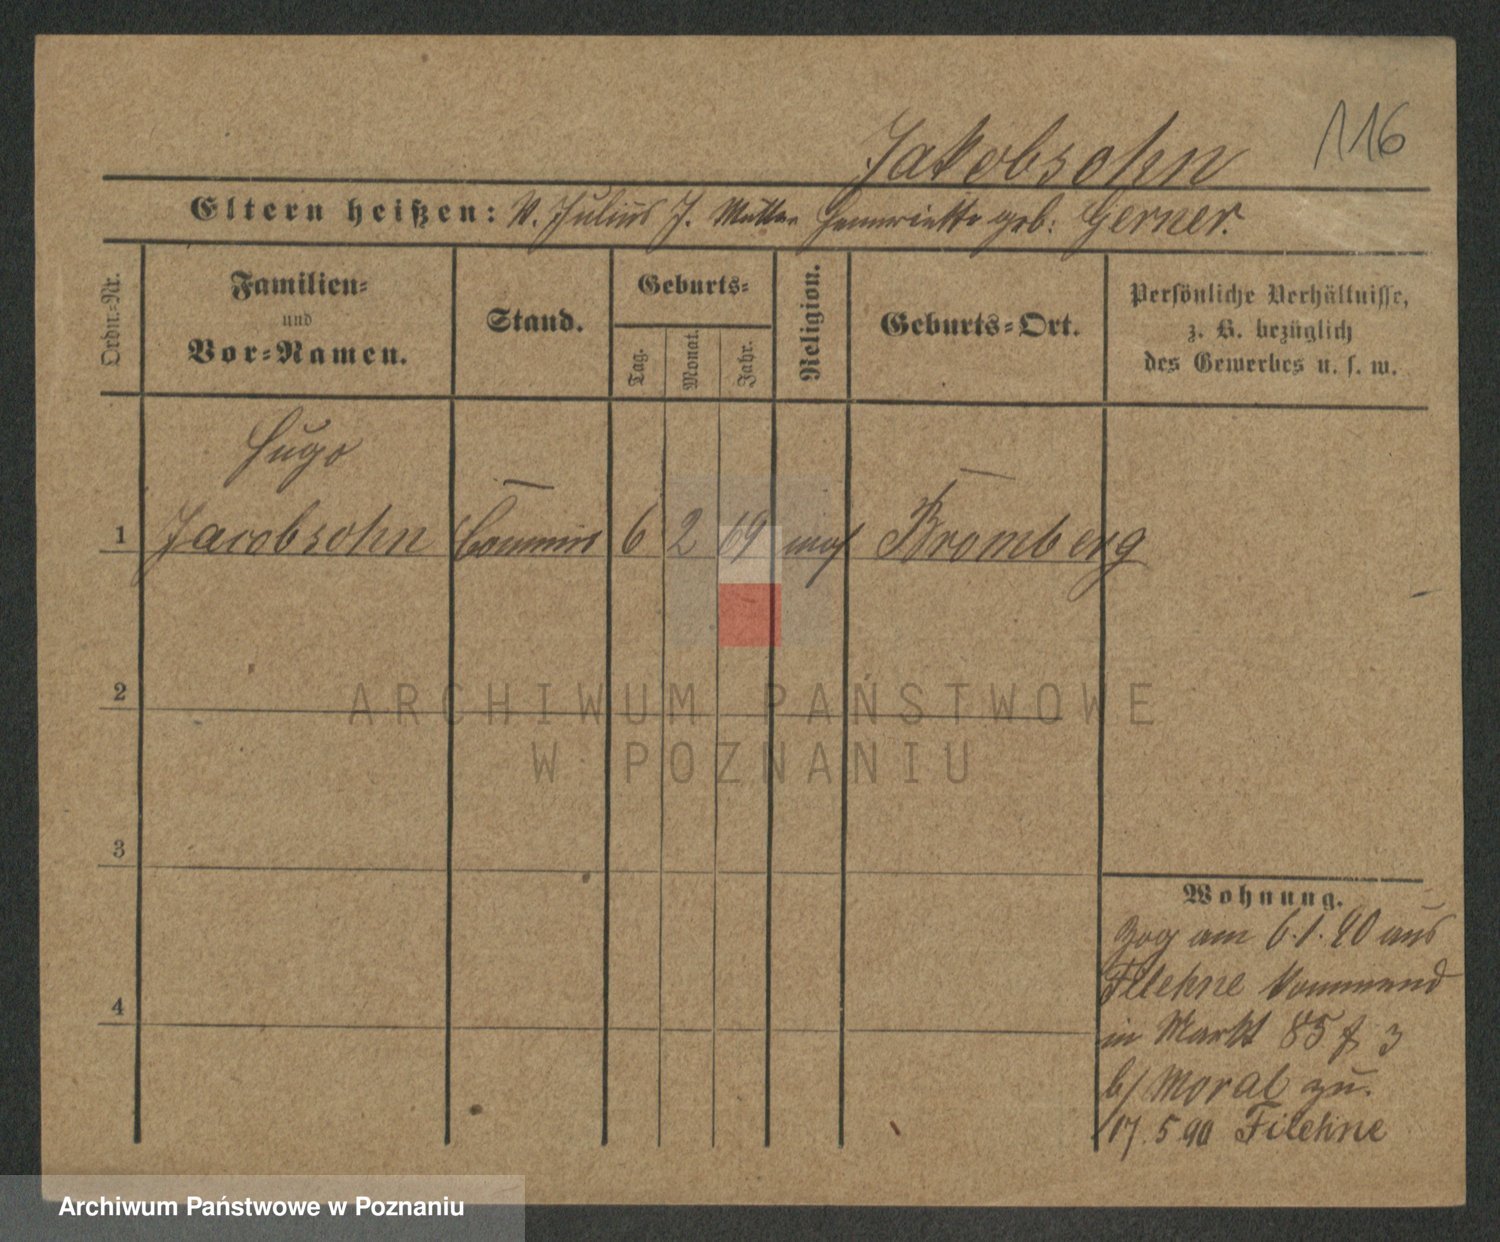 116
Jakobsohn
Eltern heißen: V. Julius J. Mutter Hennriette geb: Gerner.
Ordn.-Nr.
Familien-
und
Vor-Namen.
Stand.
Geburts-
Tag.
Monat.
Jahr.
Religion.
Geburts-Ort.
Persönliche Verhältnisse,
z. B. bezüglich
des Gewerbes u. s. w.
Hugo
1 Jacobsohn Commis 6 2 69 mos Bromberg
2
3
4
Wohnung.
Zog am 6.1.90 aus
Filehne kommend
in Markt 85 3
b/ Moral zu.
17.5 90 Filehne
ARCHIWUM PAŃSTWOWE
W POZNANIU
Archiwum Państwowe w Poznaniu